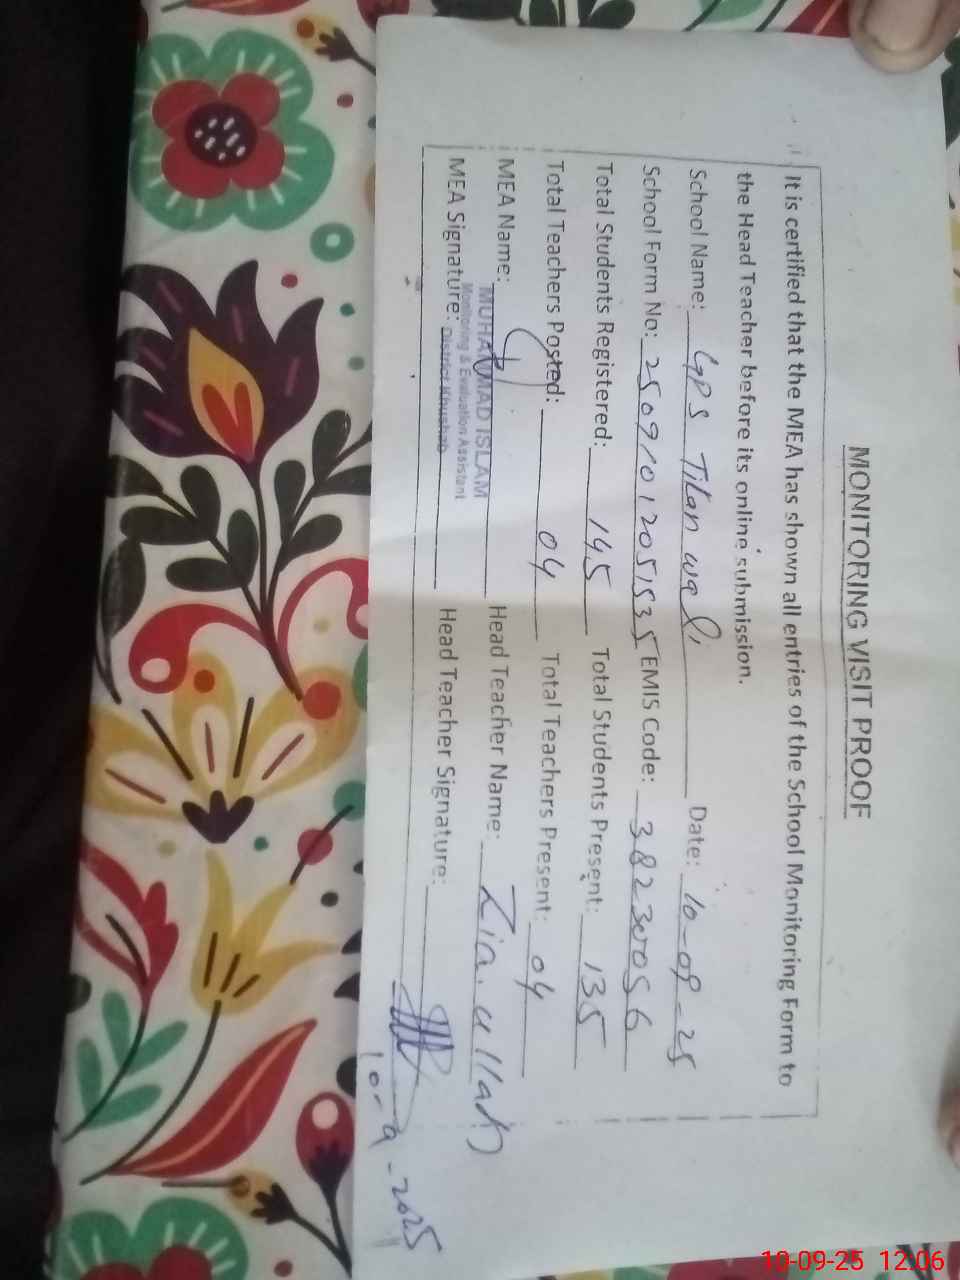 MONITORING VISIT PROOF
It is certified that the MEA has shown all entries of the School Monitoring Form to
the Head Teacher before its online submission.
School Name: GPS Titan wali Date: 10-09-25
School Form No: 25091012051535 EMIS Code: 38230056
Total Students Registered: 145 Total Students Present: 135
Total Teachers Posted: 04 Total Teachers Present: 04
MEA Name: MUHAMMAD ISLAM Head Teacher Name: Zia.ullah
Monitoring & Evaluation Assistant
MEA Signature: District Khushab Head Teacher Signature:
10-9-2025
10-09-25 12:06